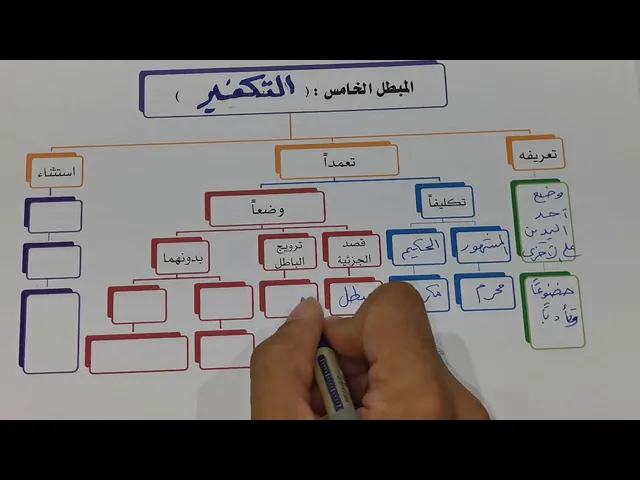 المبطل الخامس : ( التكفير )
تعريفه
تعمداً
استثناء
وضع
أحد
اليدين
على الأخرى
خضوعاً
وتأدباً
تكليفاً
وضعاً
المشهور
الحكيم
قصد
الجزئية
ترويج
الباطل
بدونهما
محرم
مبطل